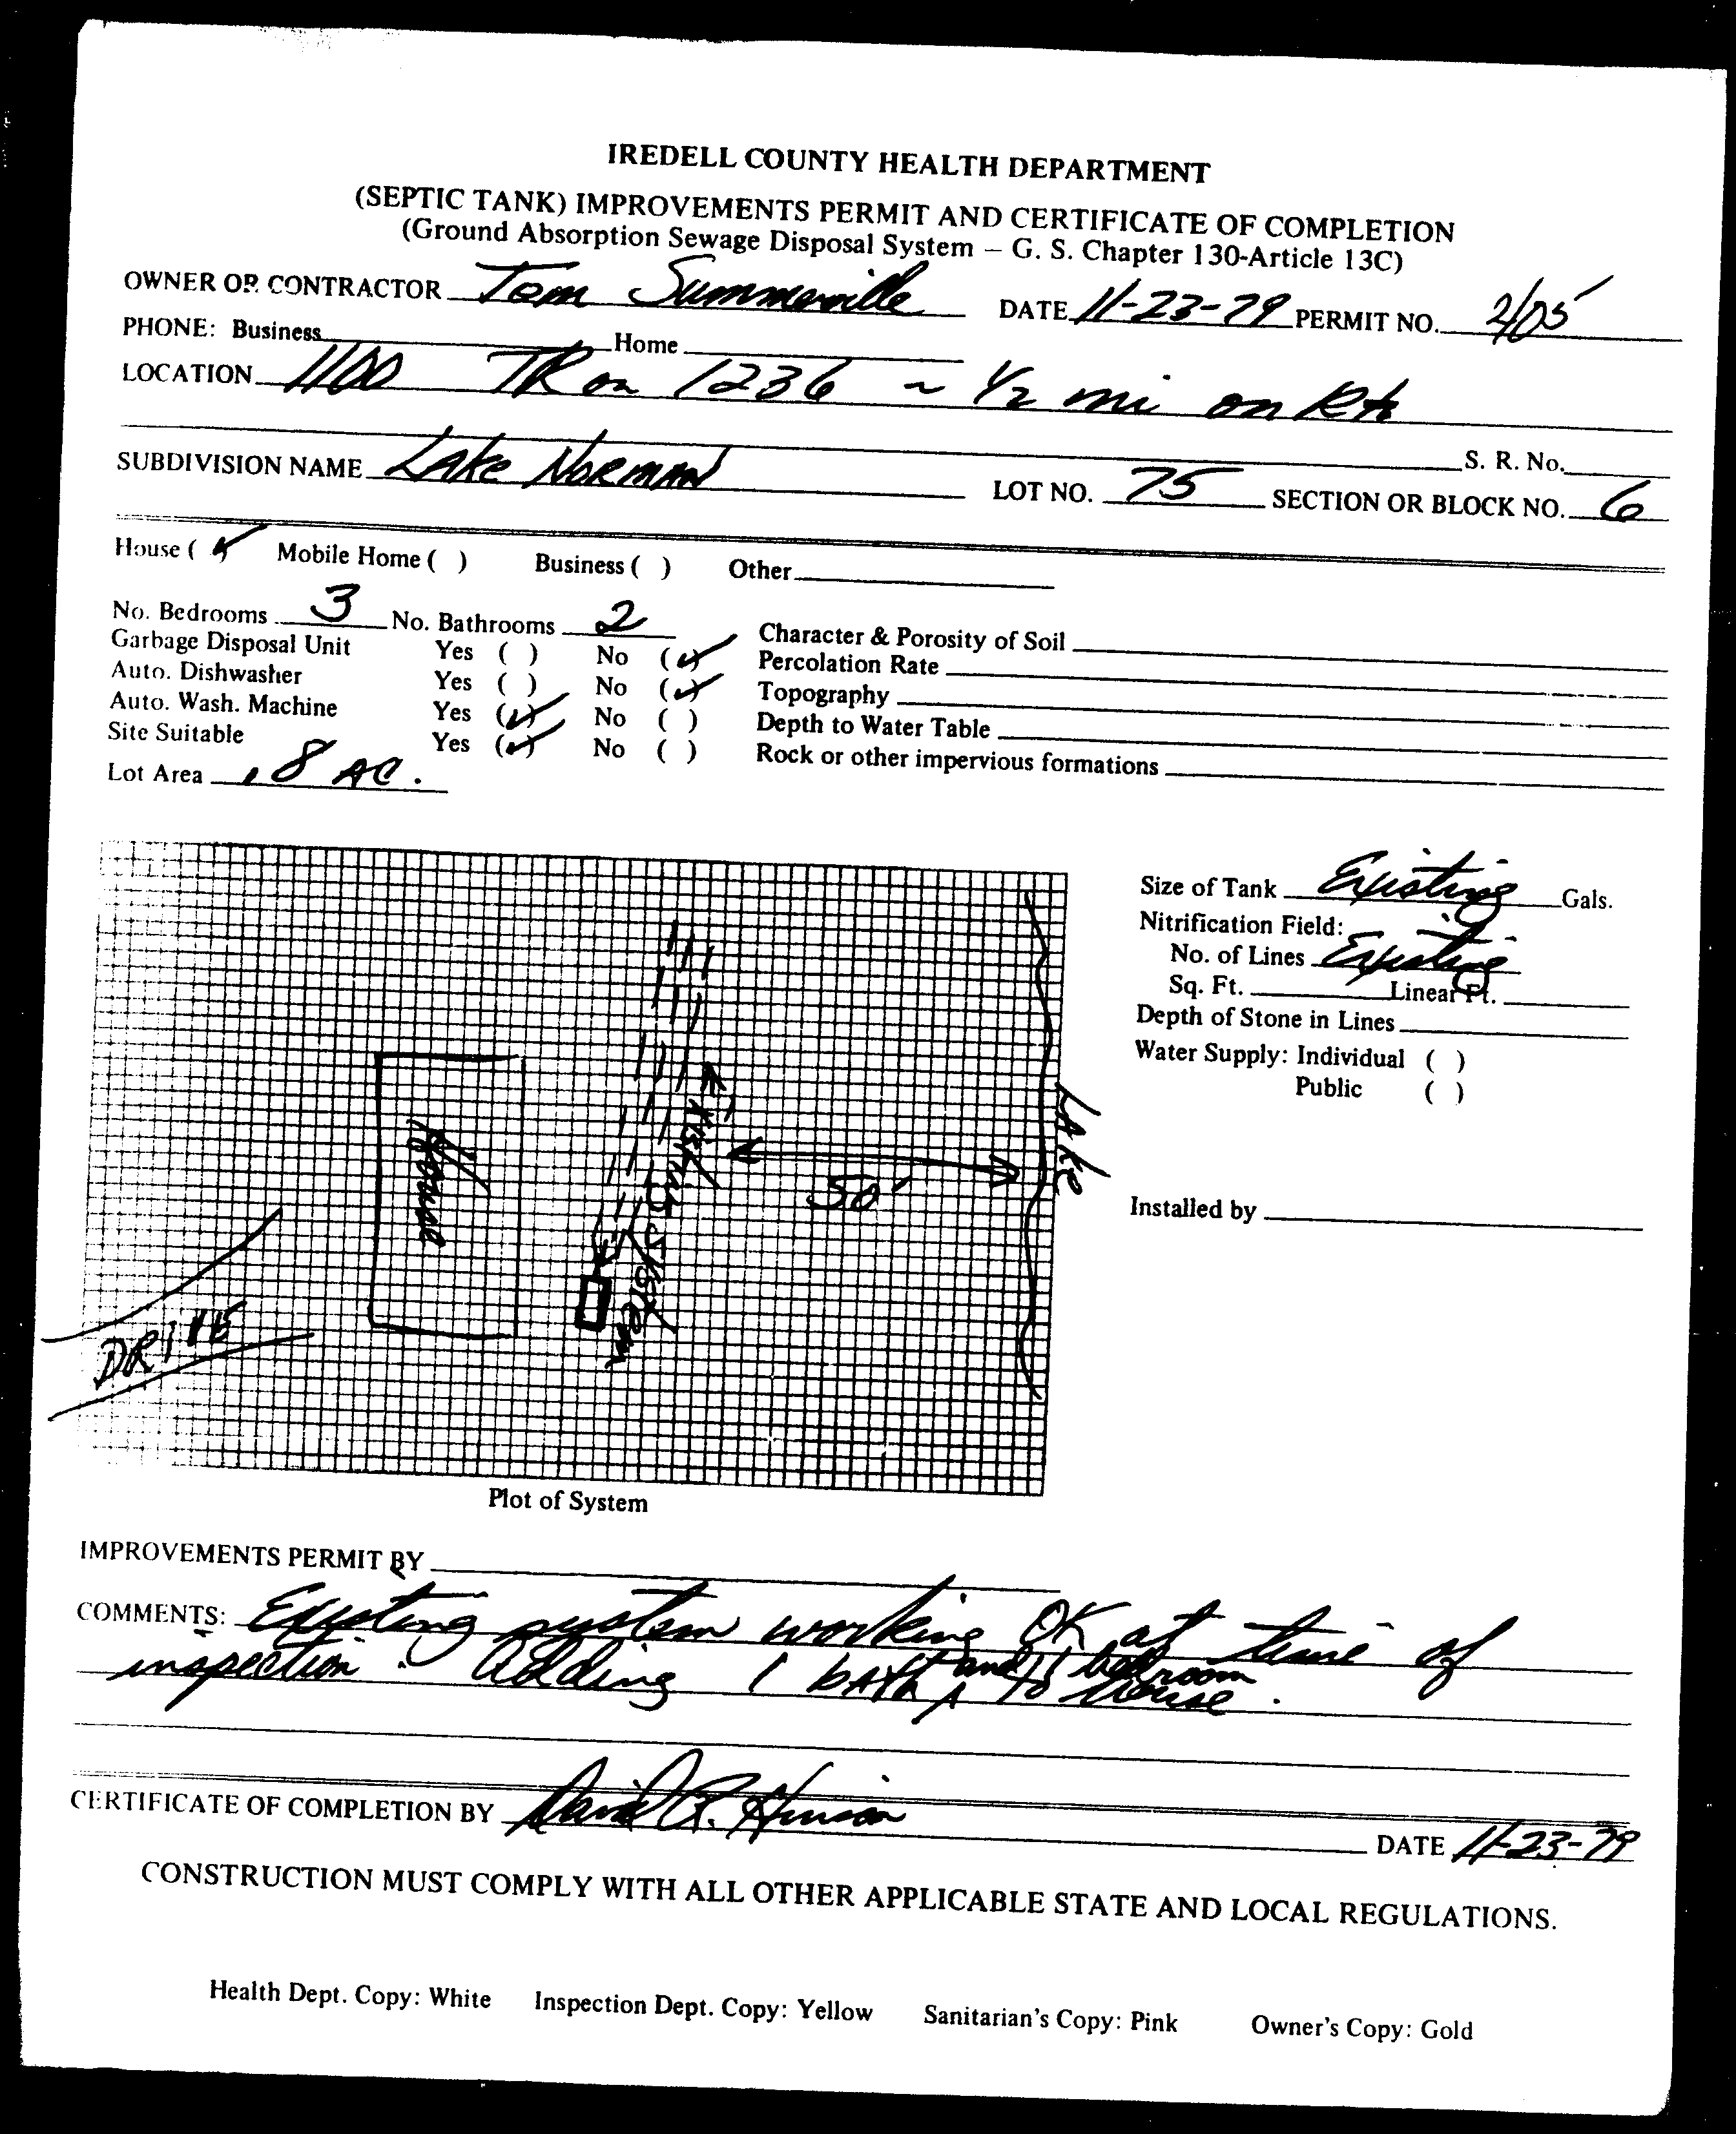 IREDELL COUNTY HEALTH DEPARTMENT
(SEPTIC TANK) IMPROVEMENTS PERMIT AND CERTIFICATE OF COMPLETION
(Ground Absorption Sewage Disposal System – G. S. Chapter 130-Article 13C)
OWNER OR CONTRACTOR Tom Summerville DATE 11-23-79 PERMIT NO. 2105
PHONE: Business Home
LOCATION 1100 TR on 1236 ~ 1/2 mi on Rt
S. R. No.
SUBDIVISION NAME Lake Norman LOT NO. 75 SECTION OR BLOCK NO. 6
House (✓) Mobile Home ( ) Business ( ) Other
No. Bedrooms 3 No. Bathrooms 2
Garbage Disposal Unit Yes ( ) No (✓)
Auto. Dishwasher Yes ( ) No (✓)
Auto. Wash. Machine Yes (✓) No ( )
Site Suitable Yes (✓) No ( )
Lot Area .8 AC.
Character & Porosity of Soil
Percolation Rate
Topography
Depth to Water Table
Rock or other impervious formations
House
DRIVE
Existing System
50'
Lake
Plot of System
Size of Tank Existing Gals.
Nitrification Field:
No. of Lines Existing
Sq. Ft. Linear Ft.
Depth of Stone in Lines
Water Supply: Individual ( )
Public ( )
Installed by
IMPROVEMENTS PERMIT BY
COMMENTS: Existing system working OK at time of
inspection. Adding 1 bath and 1 bedroom to house.
CERTIFICATE OF COMPLETION BY David R. Hinson DATE 11-23-79
CONSTRUCTION MUST COMPLY WITH ALL OTHER APPLICABLE STATE AND LOCAL REGULATIONS.
Health Dept. Copy: White Inspection Dept. Copy: Yellow Sanitarian's Copy: Pink Owner's Copy: Gold